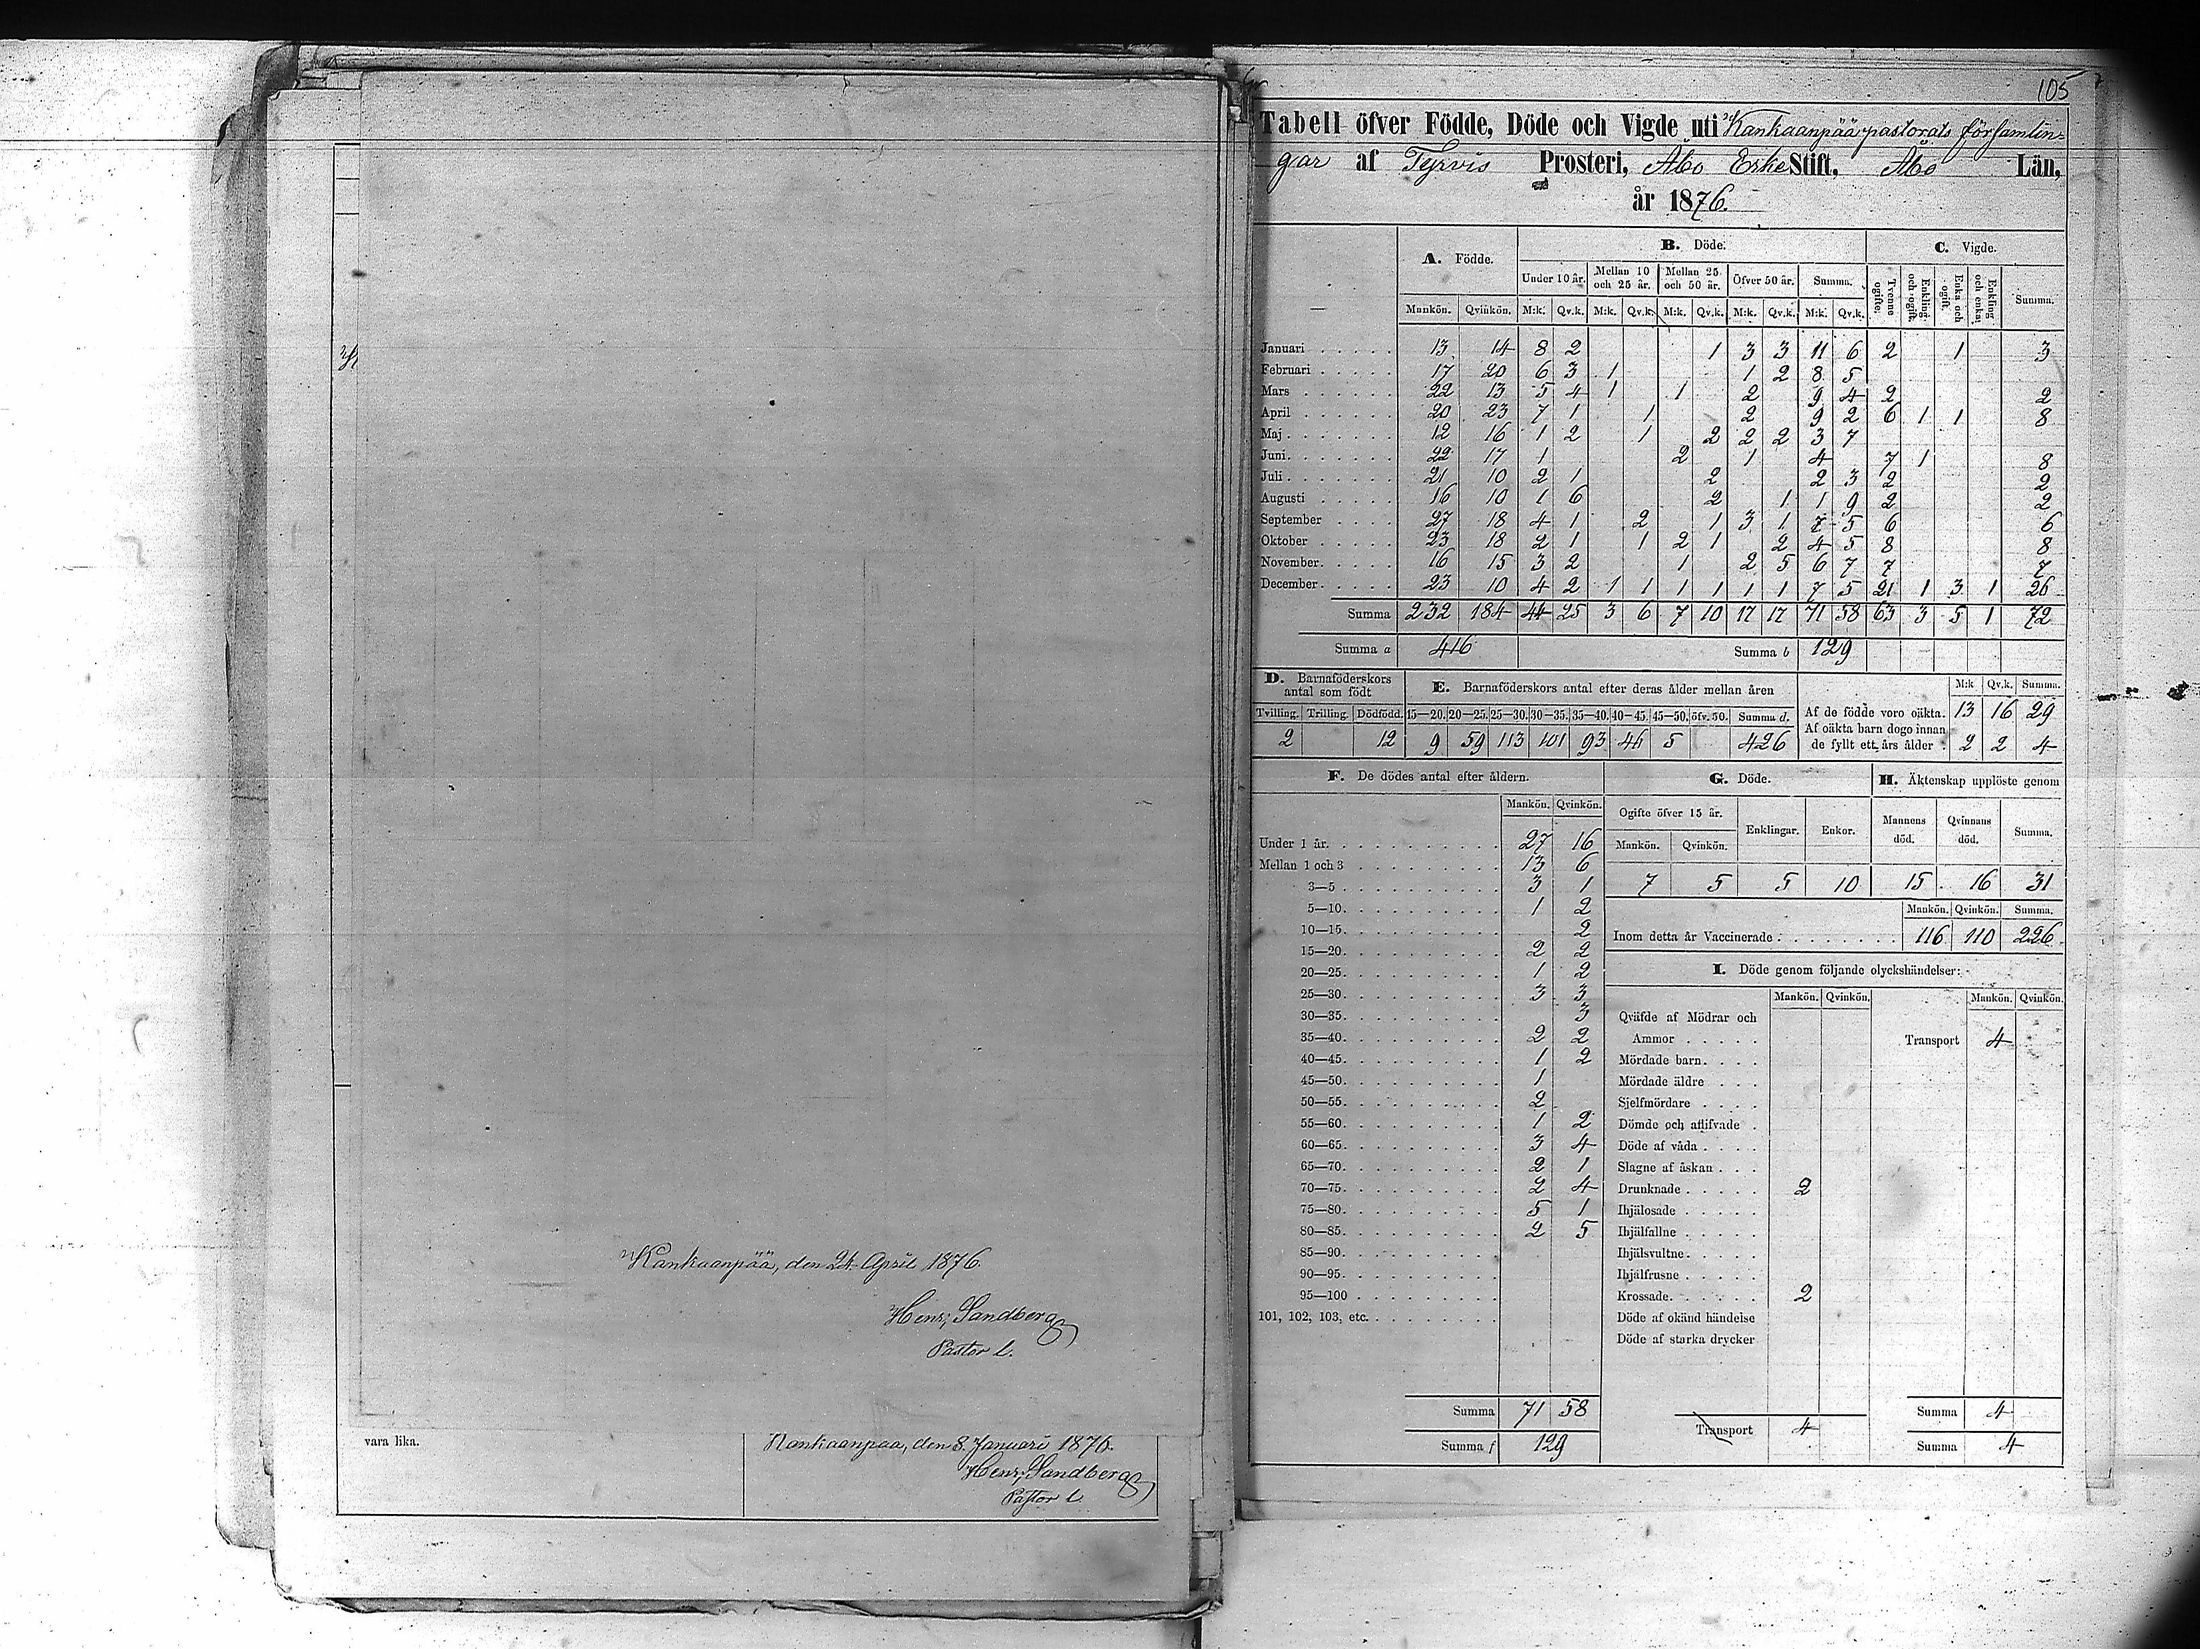 Kankaanpää, den 24 April 1876.
Henr. Sandberg
Pastor l.
vara lika.
Kankaanpaa, den 8 Januari 1876.
Henr. Sandberg
Pastor l.
105
Tabell öfver Födde, Döde och Vigde uti Kankaanpää pastorats församlin-
gar af Tyrvis Prosteri, Åbo ErkeStift, Åbo Län,
år 1876.
A. Födde. B. Döde. C. Vigde.
Under 10 år. Mellan 10 och 25 år. Mellan 25 och 50 år. Öfver 50 år. Summa. Tvenne ogifte. Enkling och ogift. Enka och ogift. Enkling och enka. Summa.
Mankön. Qvinkön. M:k. Qv.k. M:k. Qv.k. M:k. Qv.k. M:k. Qv.k. M:k. Qv.k.
Januari 13 14 8 2 1 3 3 11 6 2 1 3
Februari 17 20 6 3 1 1 2 8 5
Mars 22 13 5 4 1 1 2 9 4 2 2
April 20 23 7 1 1 2 9 2 6 1 1 8
Maj 12 16 1 2 1 2 2 2 3 7
Juni 22 17 1 2 1 4 7 1 8
Juli 21 10 2 1 2 2 3 2 2
Augusti 16 10 1 6 2 1 1 9 2 2
September 27 18 4 1 2 1 3 1 7 5 6 6
Oktober 23 18 2 1 1 2 1 2 4 5 8 8
November 16 15 3 2 1 2 5 6 7 7 7
December 23 10 4 2 1 1 1 1 1 1 7 5 21 1 3 1 26
Summa 232 184 44 25 3 6 7 10 17 17 71 58 63 3 5 1 72
Summa a 416 Summa b 129
D. Barnaföderskors antal som födt
Tvilling. Trilling. Dödfödd.
2 12
E. Barnaföderskors antal efter deras ålder mellan åren
15—20. 20—25. 25—30. 30—35. 35—40. 40—45. 45—50. öfv. 50. Summa d.
9 59 113 101 93 46 5 426
M:k Qv.k. Summa.
Af de födde voro oäkta. 13 16 29
Af oäkta barn dogo innan
de fyllt ett års ålder 2 2 4
F. De dödes antal efter åldern.
Mankön. Qvinkön.
Under 1 år. 27 16
Mellan 1 och 3 13 6
3—5 3 1
5—10. 1 2
10—15. 2
15—20. 2 2
20—25. 1 2
25—30. 3 3
30—35. 3
35—40. 2 2
40—45. 1 2
45—50. 1
50—55. 2
55—60. 1 2
60—65. 3 4
65—70. 2 1
70—75. 2 4
75—80. 5 1
80—85. 2 5
85—90.
90—95.
95—100
101, 102, 103, etc.
Summa 71 58
Summa f 129
G. Döde.
Ogifte öfver 15 år. Enklingar. Enkor.
Mankön. Qvinkön.
7 5 5 10
H. Äktenskap upplöste genom
Mannens död. Qvinnans död. Summa.
15 16 31
Mankön. Qvinkön. Summa.
Inom detta år Vaccinerade 116 110 226
I. Döde genom följande olyckshändelser:
Mankön. Qvinkön. Mankön. Qvinkön.
Qväfde af Mödrar och
Ammor
Transport 4
Mördade barn.
Mördade äldre
Sjelfmördare
Dömde och aflifvade
Döde af våda
Slagne af åskan
Drunknade 2
Ihjälosade
Ihjälfallne
Ihjälsvultne
Ihjälfrusne
Krossade 2
Döde af okänd händelse
Döde af starka drycker
Transport 4
Summa 4
Summa 4